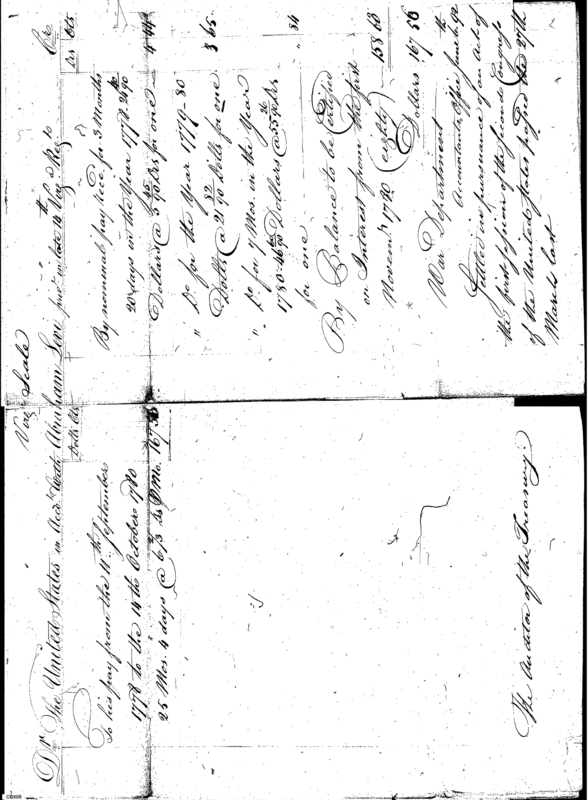 Virg Scale
Dr. The United States in Accot with Abraham privt in late 14th Virg Regt Cr
Dolls Cts
To his pay from the 11th September
1778 to the 14th October 1780
25 Mos. 4 days @ 6 2/3 Ds P Mo. 167 56
Ds Cts
By nominal pay recd. for 3 Months
20 days in the Year 1778
Dollars @ 5 Dlrs for one 4 44
" Do for the Year 1779-80
Dolls @ 21 Dolls for one 3 65.
" Do for 7 Mos. in the Year
1780 Dollars @ Dolrs
for one " 84
By Balance to be Certified
on Interest from the first
Novemr 1780 (eighty) 158 63
Dollars 167 56
War Department
Accountants office June 6th 92
Settled in pursuance of an Act of
the first session of the second Congress
of the United States passed the 27th
March last
The Auditor of the Treasury.
CBX05